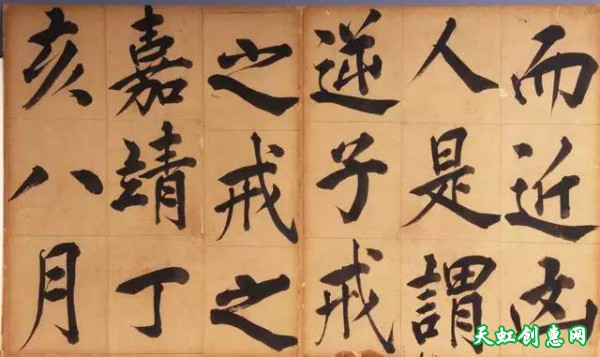 而近凶
人是謂
逆子戒
之戒之
嘉靖丁
亥八月
天虹创惠网